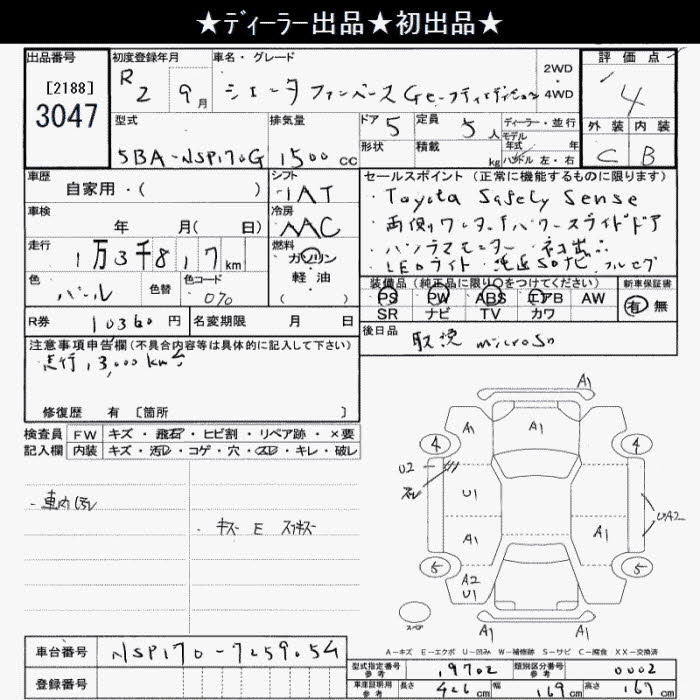 ★ディーラー出品★初出品★
出品番号 初度登録年月 車名・グレード 評価点
[2188] R2 9月 シエンタ ファンベース G セーフティエディション 2WD・4WD 4
3047
型式 排気量 ドア 5 定員 5人 ディーラー・並行 外装 内装
モデル年式
5BA-NSP170G 1500cc 形状 積載 kg ハンドル 左・右 C B
車歴 シフト セールスポイント(正常に機能するものに限ります)
自家用・( ) IAT ・Toyota Safety Sense
車検 冷房 ・両側ワンタッチパワースライドドア
年 月( 日) AAC
走行 燃料 ・パノラマモニター
1万3千817km ガソリン・軽油( ) ・LEDライト・純正SDナビ フルセグ
色 色替 色コード 装備品(純正品に限り○をつけてください) 新車保証書
パール 070 PS PW ABS エアB AW 有 無
SR ナビ TV カワ
R券 10360円 名変期限 月 日 後日品
取説 microSD
注意事項申告欄(不具合内容等は具体的に記入して下さい)
走行13,000km台
修復歴 有 [箇所 ]
検査員 FW キズ・飛石・ヒビ割・リペア跡・×要
記入欄 内装 キズ・汚レ・コゲ・穴・スレ・キレ・破レ
・車内汚レ
・キズ E スイキズ
A1
A1 A1
4 4
U2
スレ
U1
UA2
A1 A1
5 5
A2
U1
スペア
A1 A1
A-キズ E-エクボ U-凹み W-補修跡 S-サビ C-腐食 XX-交換済
車台番号 NSP170-7259054
型式指定番号 参考 19702 類別区分番号 参考 0002
登録番号 車庫証明用 参考 長さ 426cm 幅 169cm 高さ 167cm